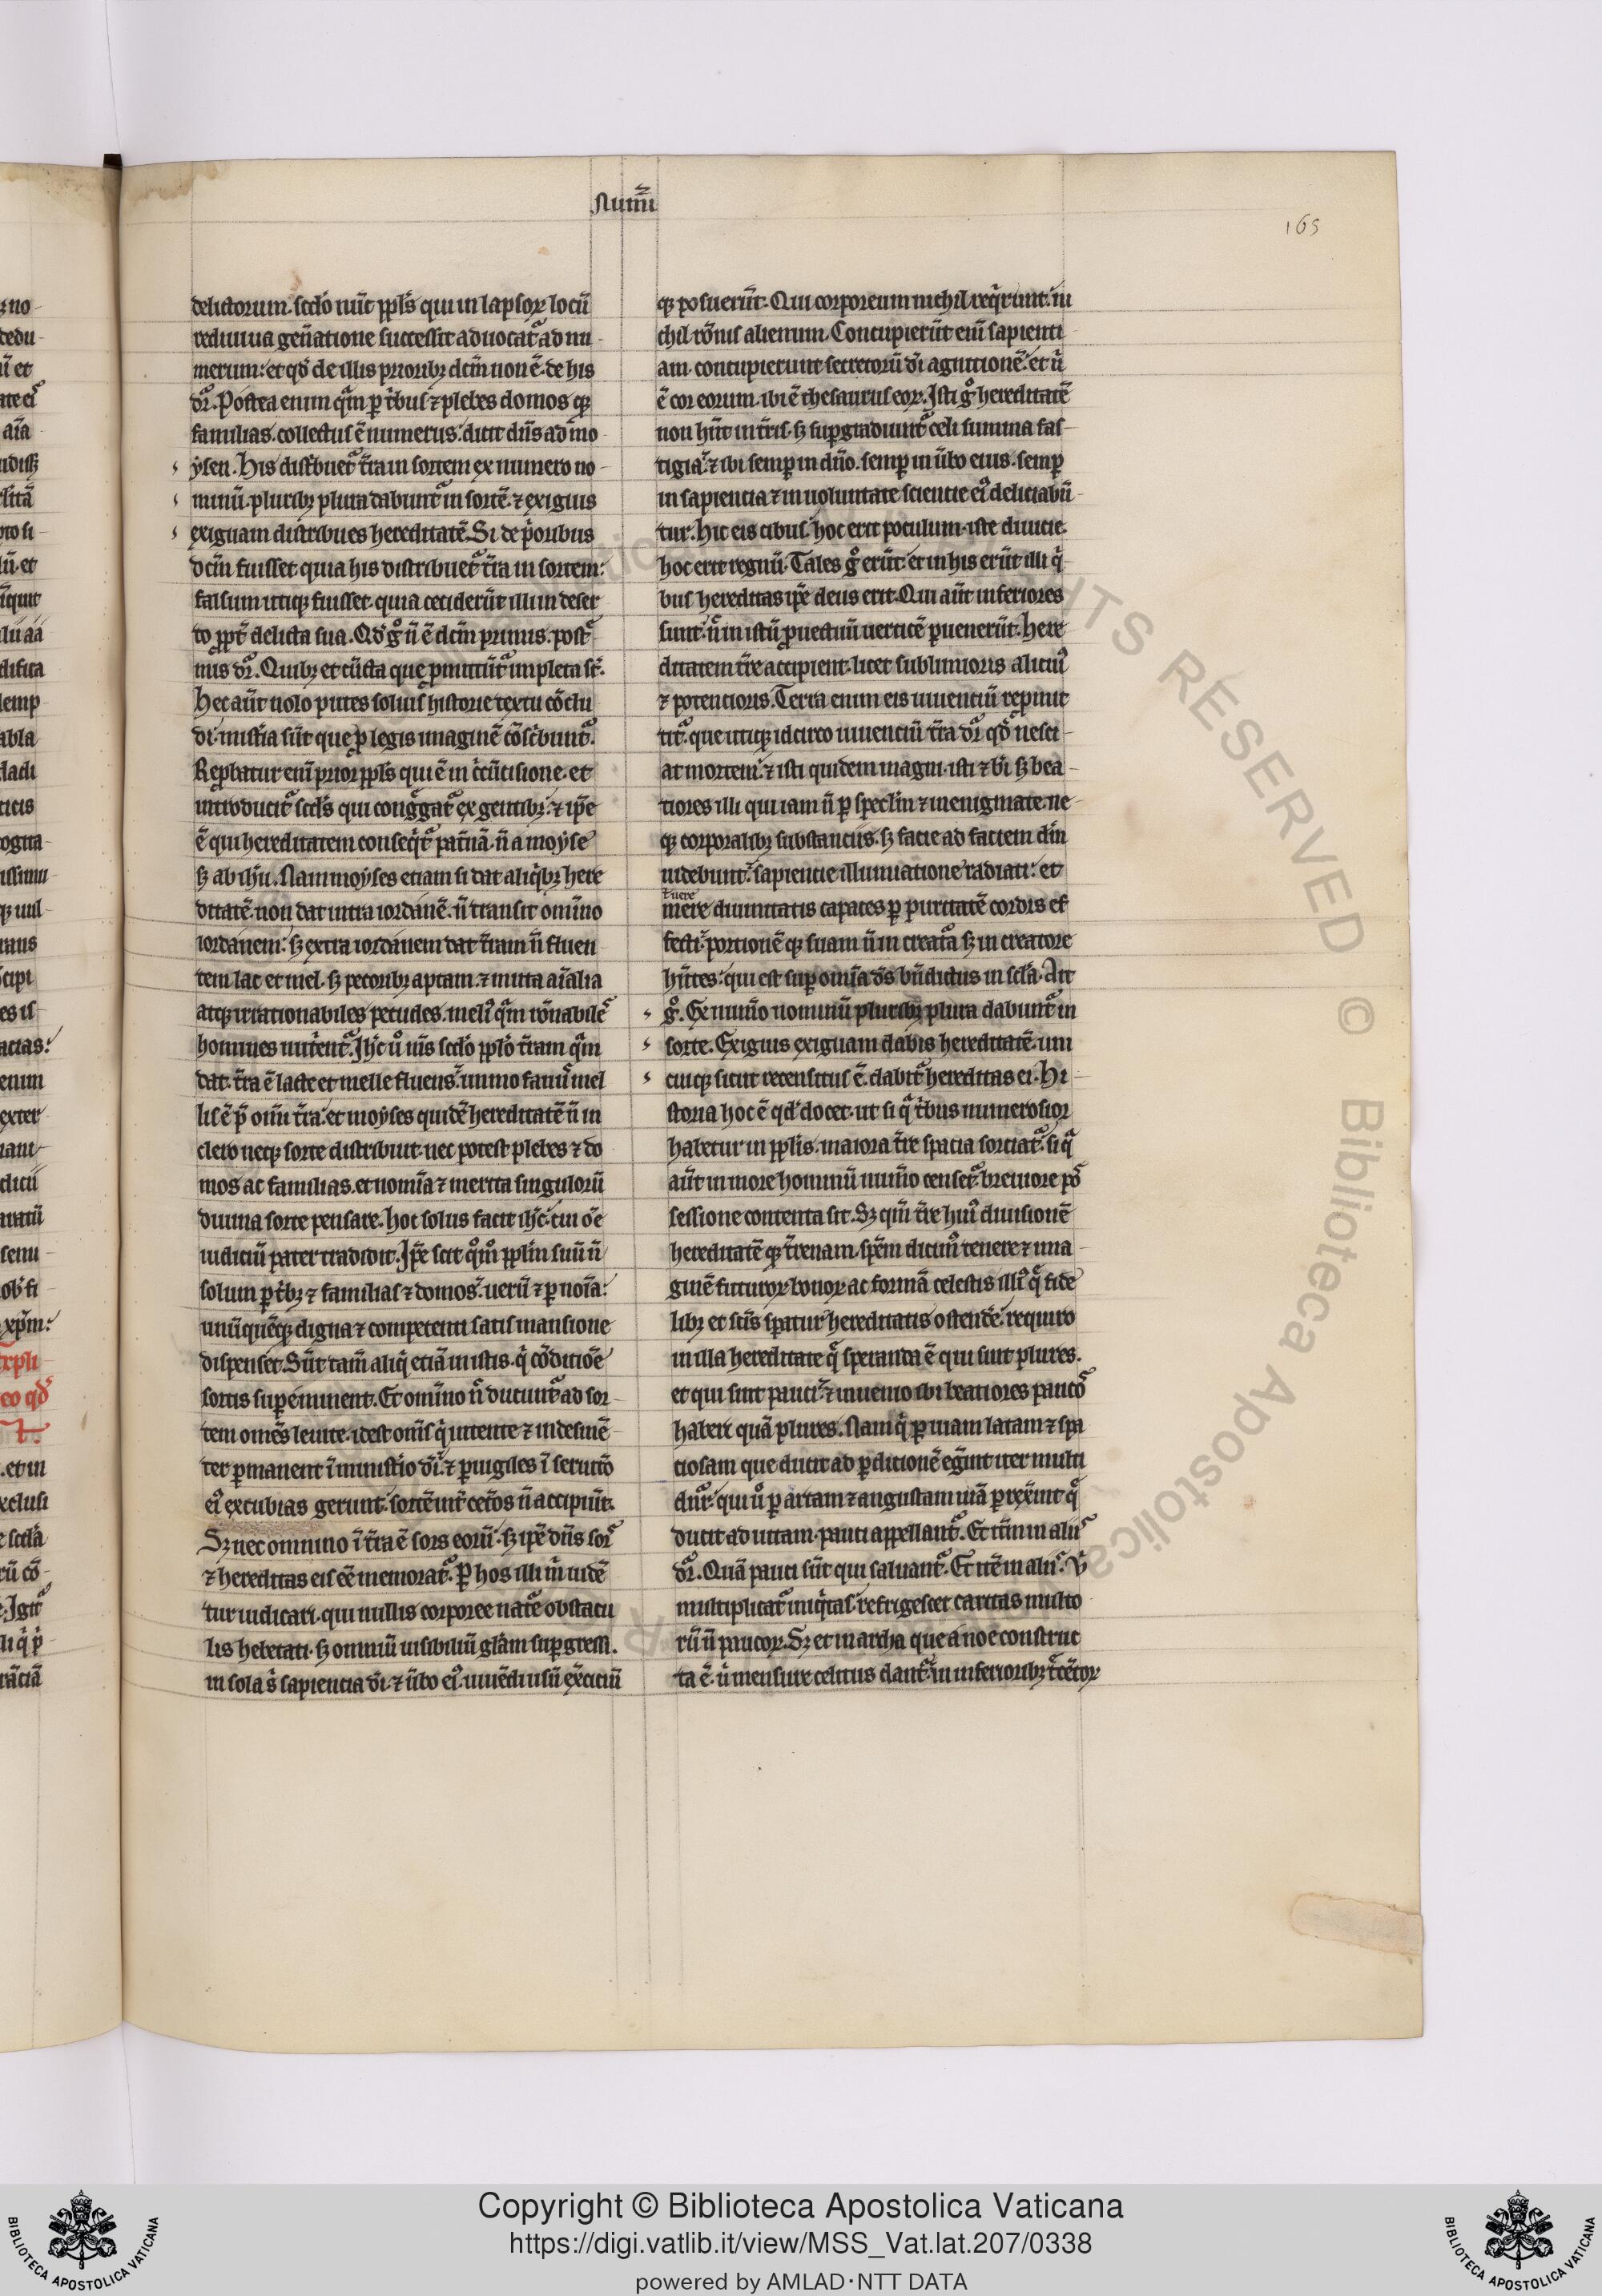 Num̄i
165
delictorum. scd̓o nūc ppl̓s qui in lapsoꝝ locū
rediuiua gen̄atione successit aduocat᷑ ad nu
merum. et qd̓ de illis priorib; dc̄m non ē. de his
dr̄. Postea enim q̄m ꝑ t̓bus ⁊ plebes domos q;
familias. collectus ē numerus. dicit dn̄s ad mo
ẏsen. His dist̓buet᷑ t̄ra in sortem ex numero no
minū. plurib; plura dabunt᷑ in sortē. ⁊ exiguis
exiguam distribues hereditatē. Si de p̓oribus
dc̄m fuisset quia his distribuet᷑ t̄ra in sortem.
falsum utiq; fuisset. quia ceciderūt illi in deser
to ꝓpt̓ delicta sua. Qd̓ g̊ n̄ ē dc̄m primis. post᷑
mis dr̄. Quib; et cūcta que ꝓmittūt᷑ impleta st̄.
Hec aūt nolo putes soluis historie textu cōclu
di. mist̓ia sūt que ꝑ legis imaginē cōsc̓bunt᷑.
Reꝓbatur eni prior ppl̓s qui ē in c̓cūcisione. et
introducit᷑ scd̓s qui cong̓gat᷑ ex gentib;. ⁊ ip̄e
ē qui hereditatem conseq̓t᷑ pat̓nā. n̄ a moẏse
s; ab ih̄u. Nam moẏses etiam si dat aliq̓b; here
ditatē. non dat intra iordanē. n̄ transit om̄ino
iordanem. s; extra iordanem dat t̄ram n̄ fluen
tem lac et mel. s; pecorib; aptam. ⁊ muta aīalia
atq; irrationabiles pecudes. meli᷒ q̄m rōnabilē
homines nut̓ent᷑. Ih̄c ů n̄is scd̓o ppl̓o t̄ram q̄m
dat. t̄ra ē lacte et melle fluens. immo fani᷒ mel
lis ē p̄ om̄i t̄ra. et moẏses quidē hereditatē n̄ in
clero neq; sorte distribuit. nec potest plebes ⁊ do
mos ac familias. et nom̄ia ⁊ merita singulorū
diuina sorte pensare. hoc solus facit ih̄c. cui oē
iudiciū pater tradidit. Ip̄e scit q̊m̊ ppl̄m suū n̄
solum ꝑ t̓b; ⁊ familias ⁊ domos. uerū ⁊ ꝑ noīa.
unūquēq; digna ⁊ competenti satis mansione
dispenset. Sūt tam̄ aliq̓ etiā in istis. q̓ cōditiōē
sortis suꝑeminent. Et om̄ino n̄ ducunt᷑ ad sor
tem om̄s leuite. idest om̄s q̓ intente ⁊ indesinē
ter ꝑmanent ī minist̓io dī. ⁊ ꝑuigiles ī seruicio
ei᷒ excubias gerunt. sortē int̓ cet̓os n̄ accipiūt.
S; nec omnino ī t̄ra ē sors eorū. s; ip̄e dn̄s sor᷒
⁊ hereditas eis eē memorat᷑. P̱ hos illi m̓ uidē
tur iudicari. qui nullis corporee nat᷑e obstacu
lis hebetati. s; omniū uisibiliū gl̄am suꝑgressi.
in sola s̓ sapiencia dī. ⁊ ūbo ei᷒. uiuēdi usū ex̄ciciū
q; posuerūt. Qui corporeum nichil req̓runt. ni
chil rōnis alienum. Concupierūt eni sapienti
am. concupierunt secretorū dī agnitionē. et ů
ē cor eorum. ibi ē thesaurus eoꝝ. Isti g̊ hereditatē
non hn̄t in t̄ris. s; suꝑgradiunt᷑ celi summa fas
tigia. ⁊ ibi semꝑ in dn̄o. semꝑ in ūbo eius. semꝑ
in sapiencia ⁊ in uoluntate scientie ei᷒ deliciabū
tur. Hic eis cibus. hoc erit poculum. iste diuicie.
hoc erit regnū. Tales g̊ erūt. et in his erūt illi q̓
bus hereditas ip̄e deus erit. Qui aūt inferiores
sunt. n̄ in istū ꝓuectuū uerticē ꝑuenerūt. here
ditatem t̄re accipient. licet sublimioris alicui᷒
⁊ potentioris. Terra enim eis uiuenciū repmit
tit᷑. que utiq; idcirco uiuenciū t̄ra dr̄. qd̓ nesci
at mortem. ⁊ isti quidem magni. isti ⁊ bī. s; bea
tiores illi qui iam n̄ ꝑ specl̄m ⁊ inenigmate. ne
q; corporalib; substanciis. s; facie ad faciem dm̄
uidebunt. sapientie illuminatione radiati. et
t uere
mere diuinitatis capaces ꝑ puritatē cordis ef
fecti. portionē q; suam n̄ in creat᷑a s; in creatore
hn̄tes. qui est suꝑ om̄ia ds̄ bn̄dictus in scl̄a. Ait
g̊. Ex num̄io nominū plurib; plura dabunt᷑ in
sorte. Exiguis exiguam dabis hereditatē. uni
cuiq; sicut recensitus ē. dabit᷑ hereditas ei. Hi
storia hoc ē qd̓ docet. ut si q̄ t̓bus numerosior
habetur in ppl̓is. maiora t̄re spacia sorciat᷑. si q̄
aūt in more hominū num̄io censet᷑. breuiore pos
sessione contenta sit. S; qm̄ t̄re hui᷒ diuisionē
hereditatē q; t̄renam. spēm dicim᷒ tenere ⁊ ima
ginē futuroꝝ bonoꝝ ac formā celestis illi᷒ q̄ fide
lib; et sc̄is sꝑatur hereditatis ostendē. requiro
in illa hereditate q̄ speranda ē qui sint plures.
et qui sint pauci. ⁊ inuenio ibi beatiores pauco᷒
habere quā plures. Nam q̓ ꝑ uiam latam ⁊ spa
ciosam que ducit ad ꝑditionē eḡint iter multi
dn̄r. qui ů ꝑ artam ⁊ angustam uiā ꝑrexēint q̄
ducit ad uitam. pauci appellant᷑. Et itm̄ in aliis
dr̄. Quā pauci sūt qui saluant᷑. Et itē in aliis. ů
multiplicat᷑ iniq̓tas. refrigescet caritas multo
rū n̄ paucoꝝ. S; et in archa que a noe construc
ta ē. ů mensure celitus dant᷑. in inferiorib; t̓cētoꝝ